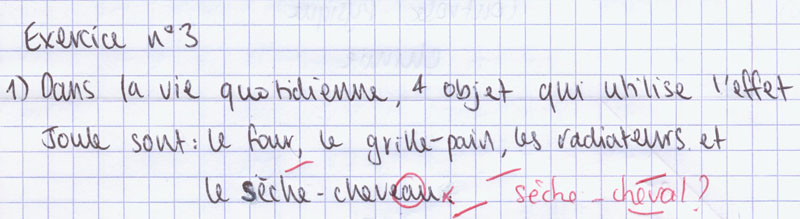 Exercice n°3
1) Dans la vie quotidienne, 4 objet qui utilise l'effet
Joule sont: le four, le grille-pain, les radiateurs et
le sèche-cheveaux. sèche-cheval?